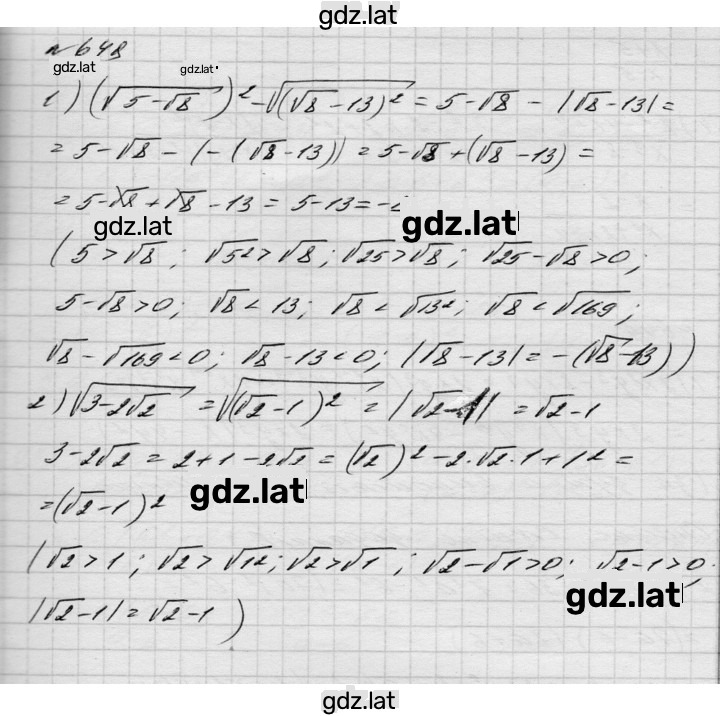 gdz.lat
№648
gdz.lat gdz.lat
1) (√(5-√8))² - √((√8-13)²) = 5-√8 - |√8-13| =
= 5-√8 - (-(√8-13)) = 5-√8 + (√8-13) =
= 5-√8 + √8 - 13 = 5-13 =
gdz.lat gdz.lat
(5>√8; √5²>√8; √25>√8; √25-√8>0;
5-√8>0; √8<13; √8<√13²; √8<√169;
√8-√169<0; √8-13<0; |√8-13| = -(√8-13))
2) √(3-2√2) = √((√2-1)²) = |√2-1| = √2-1
3-2√2 = 2+1-2√2 = (√2)² - 2·√2·1+1² =
gdz.lat
= (√2-1)²
(√2>1; √2>√1²; √2>√1; √2-√1>0; √2-1>0;
gdz.lat
|√2-1| = √2-1)
gdz.lat